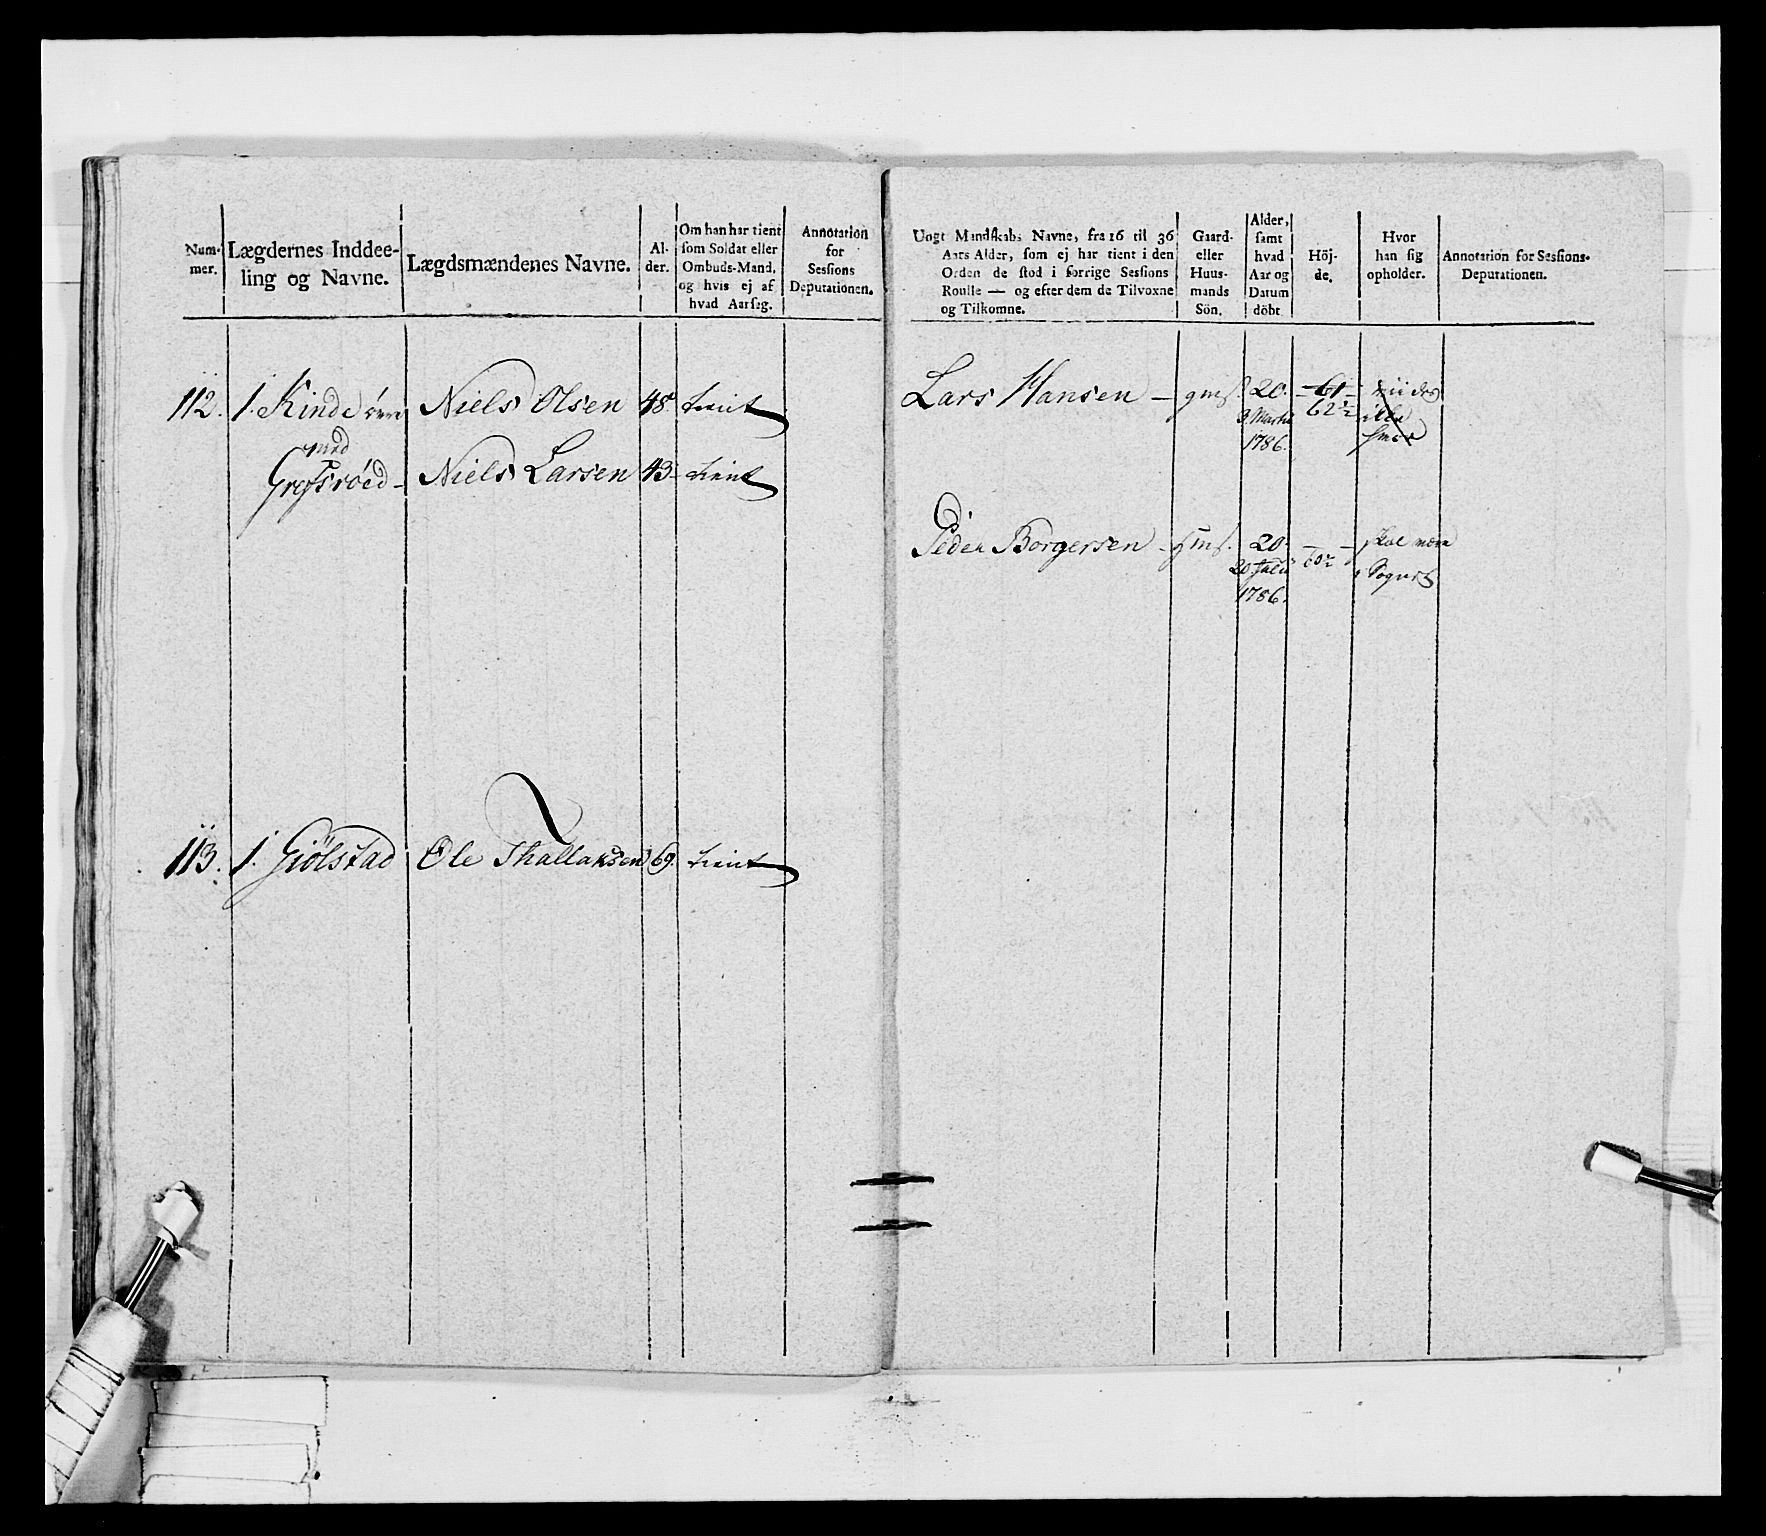 Num-
mer.
Lægdernes Inddee-
ling og Navne.
Lægdsmændenes Navne.
Al-
der.
Om han har tient
som Soldat eller
Ombuds-Mand,
og hvis ej af
hvad Aarsag.
Annotation
for
Sessions
Deputationen.
112. 1. Kinde øvre Niels Olsen 48. tient
med
Grefsröed - Niels Larsen 43- tient
113. 1. Giölstad Ole Thallaksen 69. tient
Ungt Mandskabs Navne, fra 16 til 36
Aars Alder, som ej har tient i den
Orden de stod i forrige Sessions
Roulle — og efter dem de Tilvoxne
og Tilkomne.
Gaard-
eller
Huus-
mands
Sön.
Alder,
samt
hvad
Aar og
Datum
döbt
Höj-
de.
Hvor
han sig
opholder.
Annotation for Sessions-
Deputationen.
Lars Hansen - gms. 20. - 61 -
3 Martii 62½
1786.
Peder Borgersen - gms. 20. skal være
20 Julii 60½ i Sognet
1786.